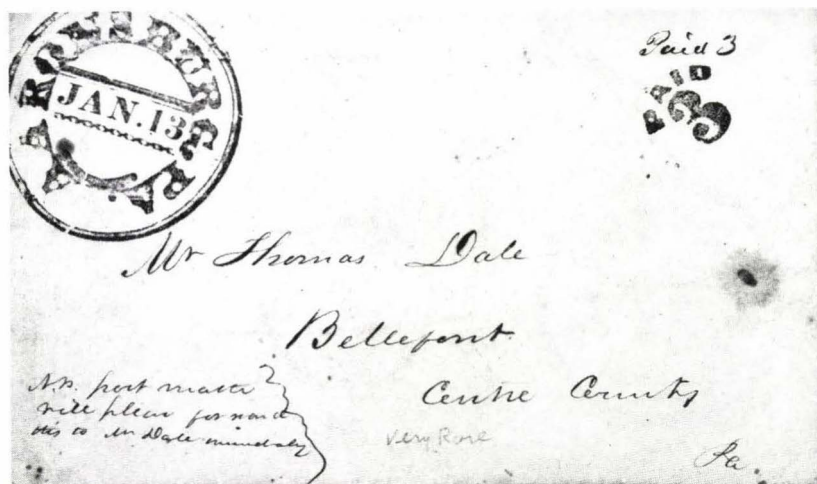 AARONSBURG PA.
JAN. 13
Paid 3
PAID
3
Mr Thomas Dale
Bellefont
Centre County
Pa
N.B. post master
will pleas forward
this to Mr Dale
very Rare